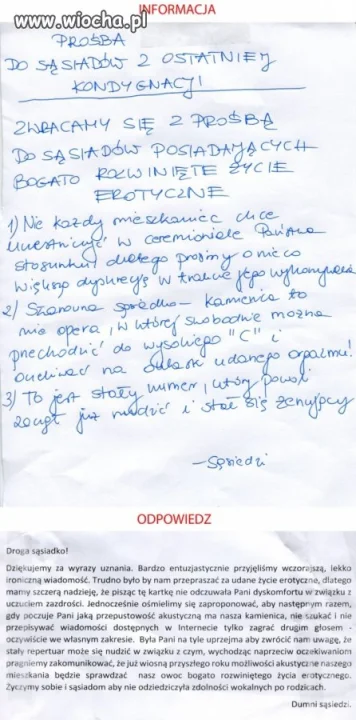 www.wiocha.pl
INFORMACJA
PROŚBA
DO SĄSIADÓW Z OSTATNIEJ
KONDYGNACJI
ZWRACAMY SIĘ Z PROŚBĄ
DO SĄSIADÓW POSIADAJĄCYCH
BOGATO ROZWINIĘTE ŻYCIE
EROTYCZNE
1) Nie każdy mieszkaniec chce
uczestniczyć w ceremoniale Państwa
stosunku, dlatego prosimy o nieco
większą dyskrecję w trakcie jego wykonywania
2) Szanowna sąsiadko - kamienica to
nie opera, w której swobodnie można
przechodzić do wysokiego "C" i
oczekiwać na oklaski udanego orgazmu!
3) To jest stały numer, który powoli
zaczął już nudzić i stał się żenujący
- Sąsiedzi
ODPOWIEDZ
Droga sąsiadko!
Dziękujemy za wyrazy uznania. Bardzo entuzjastycznie przyjęliśmy wczorajszą, lekko
ironiczną wiadomość. Trudno było by nam przepraszać za udane życie erotyczne, dlatego
mamy szczerą nadzieję, że pisząc tę kartkę nie odczuwała Pani dyskomfortu w związku z
uczuciem zazdrości. Jednocześnie ośmielimy się zaproponować, aby następnym razem,
gdy poczuje Pani jaką przepustowość akustyczną ma nasza kamienica, nie szukać i nie
przepisywać wiadomości dostępnych w Internecie tylko zagrać drugim głosem -
oczywiście we własnym zakresie. Była Pani na tyle uprzejma aby zwrócić nam uwagę, że
stały repertuar może się nudzić w związku z czym, wychodząc naprzeciw oczekiwaniom
pragniemy zakomunikować, że już wiosną przyszłego roku możliwości akustyczne naszego
mieszkania będzie sprawdzać nasz owoc bogato rozwiniętego życia erotycznego.
Życzymy sobie i sąsiadom aby nie odziedziczyła zdolności wokalnych po rodzicach.
Dumni sąsiedzi.